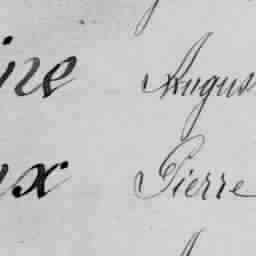 ine Augus
ux Pierre